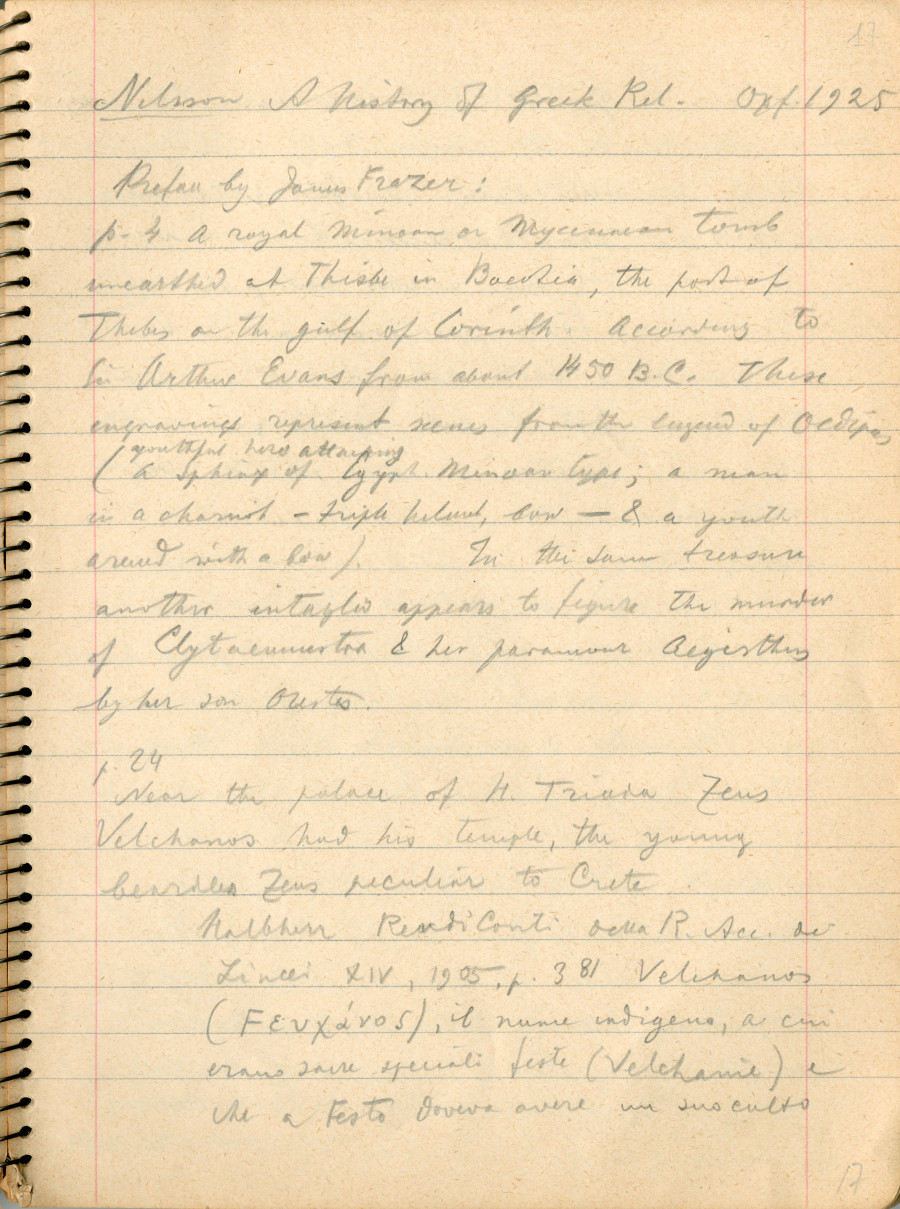 17
Nilsson A History of Greek Rel. Oxf. 1925
Preface by James Frazer:
p. 4 A royal Minoan or Mycenaean tomb
unearthed at Thisbe in Boeotia, the port of
Thebes on the gulf of Corinth. According to
Sir Arthur Evans from about 1450 B.C. These
engravings represent scenes from the legend of Oedipus
youthful hero attacking
(a sphinx of Egypt. Minoan type; a man
in a chariot – triple helmet, bow – & a youth
armed with a bow). In the same treasure
another intaglio appears to figure the murder
of Clytaemnestra & her paramour Aegisthus
by her son Orestes.
p. 24
Near the palace of H. Triada Zeus
Velchanos had his temple, the young
beardless Zeus peculiar to Crete
Halbherr Rendiconti della R. Acc. dei
Lincei XIV, 1905, p. 381 Velchanos
(Ϝευχάνος), il nume indigeno, a cui
erano sacre speciali feste (Velchanie) e
che a Festo doveva avere un suo culto
17